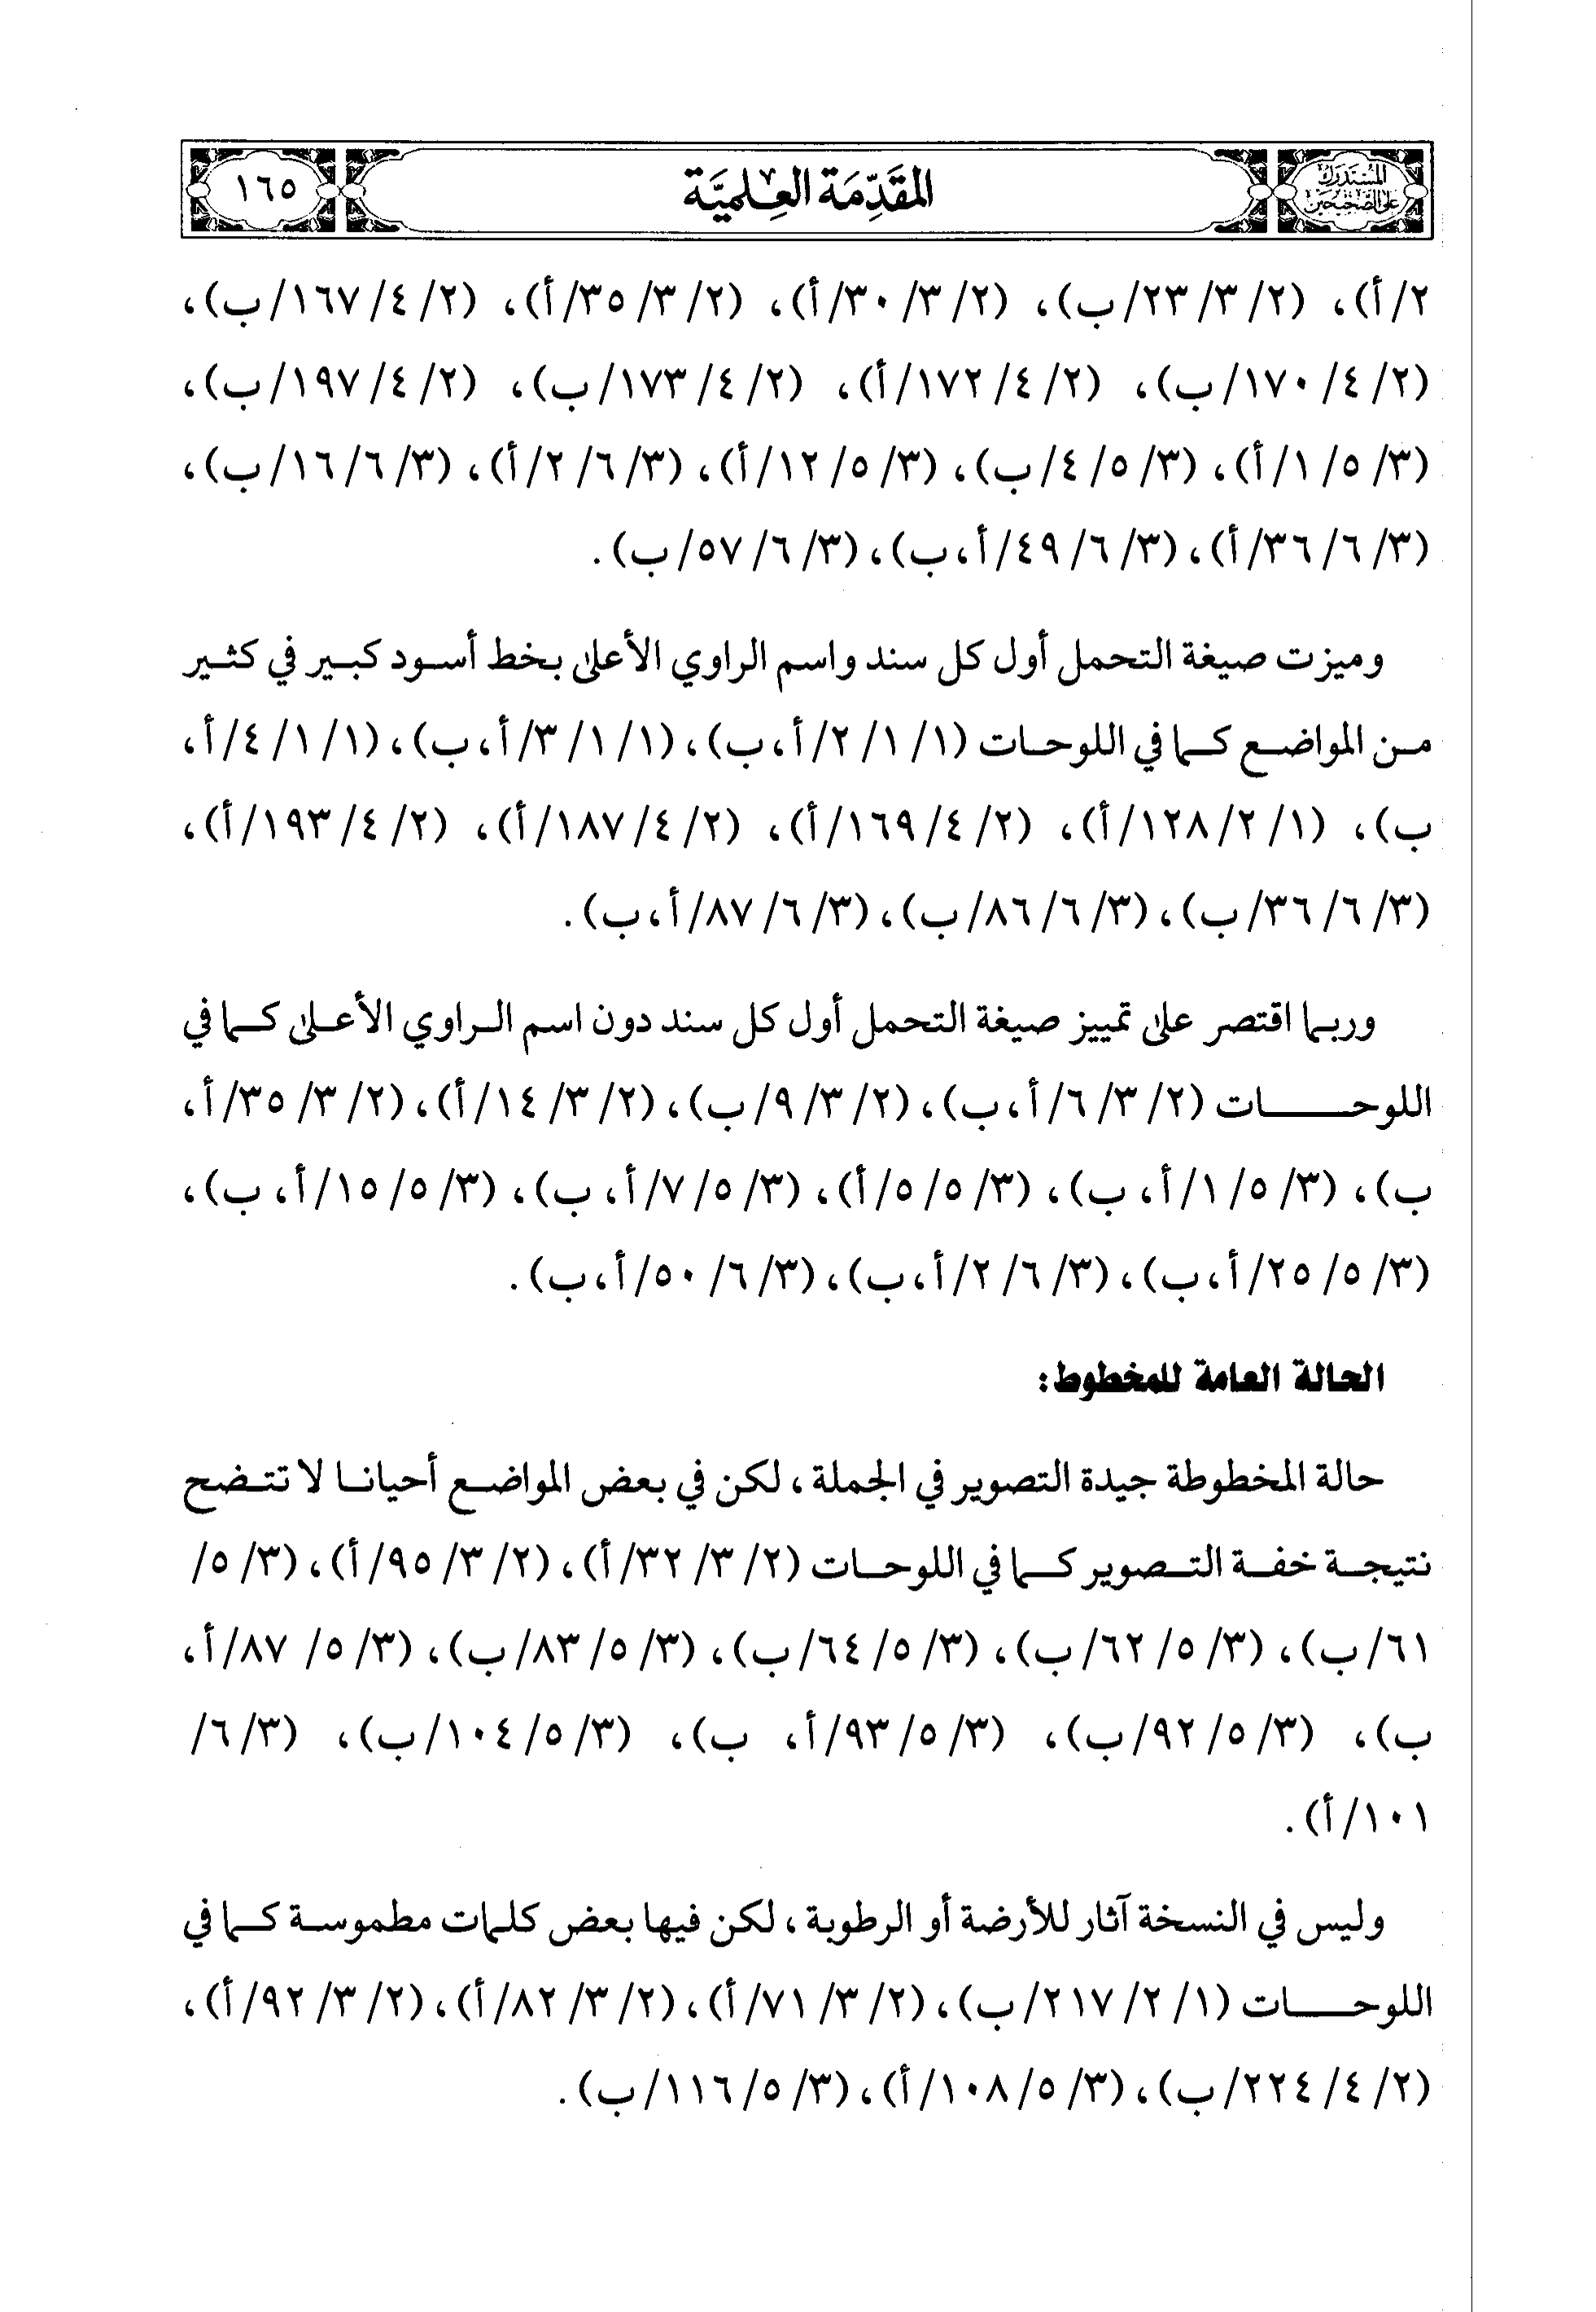 المستدرك على الصحيحين
المقَدِّمَة العِلميَّة
١٦٥
٢/ أ)، (٢/ ٣/ ٢٣/ ب)، (٢/ ٣/ ٣٠/ أ)، (٢/ ٣/ ٣٥/ أ)، (٢/ ٤/ ١٦٧/ ب)،
(٢/ ٤/ ١٧٠/ ب)، (٢/ ٤/ ١٧٢/ أ)، (٢/ ٤/ ١٧٣/ ب)، (٢/ ٤/ ١٩٧/ ب)،
(٣/ ٥/ ١/ أ)، (٣/ ٥/ ٤/ ب)، (٣/ ٥/ ١٢/ أ)، (٣/ ٦/ ٢/ أ)، (٣/ ٦/ ١٦/ ب)،
(٣/ ٦/ ٣٦/ أ)، (٣/ ٦/ ٤٩/ أ، ب)، (٣/ ٦/ ٥٧/ ب).
وميزت صيغة التحمل أول كل سند واسم الراوي الأعلى بخط أسود كبير في كثير
من المواضع كما في اللوحات (١/ ١/ ٢/ أ، ب)، (١/ ١/ ٣/ أ، ب)، (١/ ١/ ٤/ أ،
ب)، (١/ ٢/ ١٢٨/ أ)، (٢/ ٤/ ١٦٩/ أ)، (٢/ ٤/ ١٨٧/ أ)، (٢/ ٤/ ١٩٣/ أ)،
(٣/ ٦/ ٣٦/ ب)، (٣/ ٦/ ٨٦/ ب)، (٣/ ٦/ ٨٧/ أ، ب).
وربما اقتصر على تمييز صيغة التحمل أول كل سند دون اسم الراوي الأعلى كما في
اللوحات (٢/ ٣/ ٦/ أ، ب)، (٢/ ٣/ ٩/ ب)، (٢/ ٣/ ١٤/ أ)، (٢/ ٣/ ٣٥/ أ،
ب)، (٣/ ٥/ ١/ أ، ب)، (٣/ ٥/ ٥/ أ)، (٣/ ٥/ ٧/ أ، ب)، (٣/ ٥/ ١٥/ أ، ب)،
(٣/ ٥/ ٢٥/ أ، ب)، (٣/ ٦/ ٢/ أ، ب)، (٣/ ٦/ ٥٠/ أ، ب).
الحالة العامة للمخطوط:
حالة المخطوطة جيدة التصوير في الجملة، لكن في بعض المواضع أحيانا لا تتضح
نتيجة خفة التصوير كما في اللوحات (٢/ ٣/ ٣٢/ أ)، (٢/ ٣/ ٩٥/ أ)، (٣/ ٥/
٦١/ ب)، (٣/ ٥/ ٦٢/ ب)، (٣/ ٥/ ٦٤/ ب)، (٣/ ٥/ ٨٣/ ب)، (٣/ ٥/ ٨٧/ أ،
ب)، (٣/ ٥/ ٩٢/ ب)، (٣/ ٥/ ٩٣/ أ، ب)، (٣/ ٥/ ١٠٤/ ب)، (٣/ ٦/
١٠١/ أ).
وليس في النسخة آثار للأرضة أو الرطوبة، لكن فيها بعض كلمات مطموسة كما في
اللوحات (١/ ٢/ ٢١٧/ ب)، (٢/ ٣/ ٧١/ أ)، (٢/ ٣/ ٨٢/ أ)، (٢/ ٣/ ٩٢/ أ)،
(٢/ ٤/ ٢٢٤/ ب)، (٣/ ٥/ ١٠٨/ أ)، (٣/ ٥/ ١١٦/ ب).